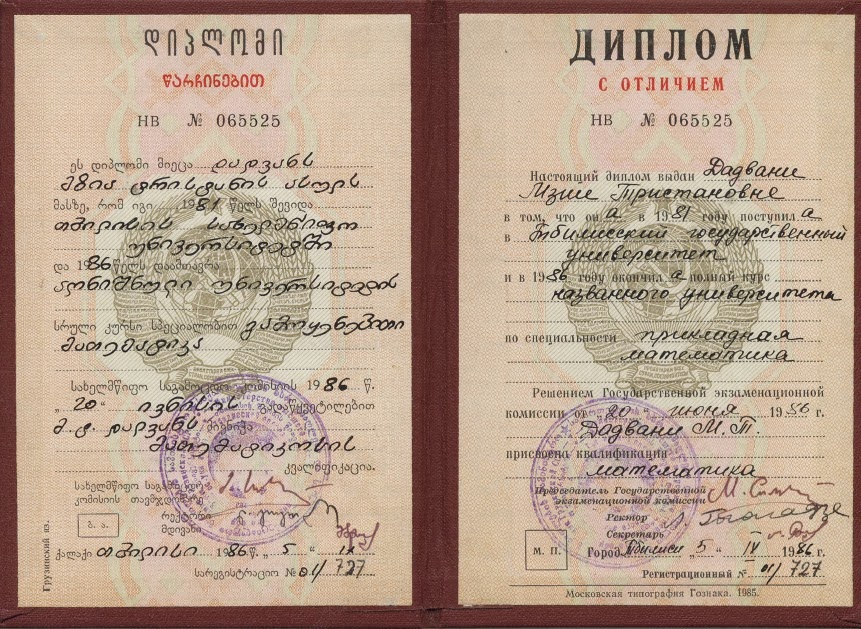 დიპლომი
წარჩინებით
НВ № 065525
ეს დიპლომი მიეცა დადვანს
მზია ტრისტანის ასულს
მასზე, რომ იგი 1981 წელს შევიდა
თბილისის სახელმწიფო
უნივერსიტეტში
და 1986 წელს დაამთავრა
აღნიშნული უნივერსიტეტის
სრული კურსი სპეციალობით გამოყენებითი
მათემატიკა
სახელმწიფო საგამოცდო კომისიის 1986 წ.
„20" ივნისის გადაწყვეტილებით
მ. ტ. დადვანს მიენიჭა
მათემატიკოსის
კვალიფიკაცია.
სახელმწიფო საგამოცდო
კომისიის თავმჯდომარე
რექტორი
მდივანი
ბ. ა.
ქალაქი თბილისი 1986 წ. „5"
სარეგისტრაციო № 01/727
Грузинский яз.
ДИПЛОМ
С ОТЛИЧИЕМ
НВ № 065525
Настоящий диплом выдан Дадвани
Мзие Тристановне
в том, что он а в 1981 году поступил а
в Тбилисский государственный
университет
и в 1986 году окончил а полный курс
названного университета
по специальности прикладная
математика
Решением Государственной экзаменационной
комиссии от „20" июня 1986 г.
Дадвани М. Т.
присвоена квалификация
математика
Председатель Государственной
экзаменационной комиссии
Ректор
Секретарь
М. П.
Город Тбилиси „5" IV 1986 г.
Регистрационный № 01/727
Московская типография Гознака. 1985.